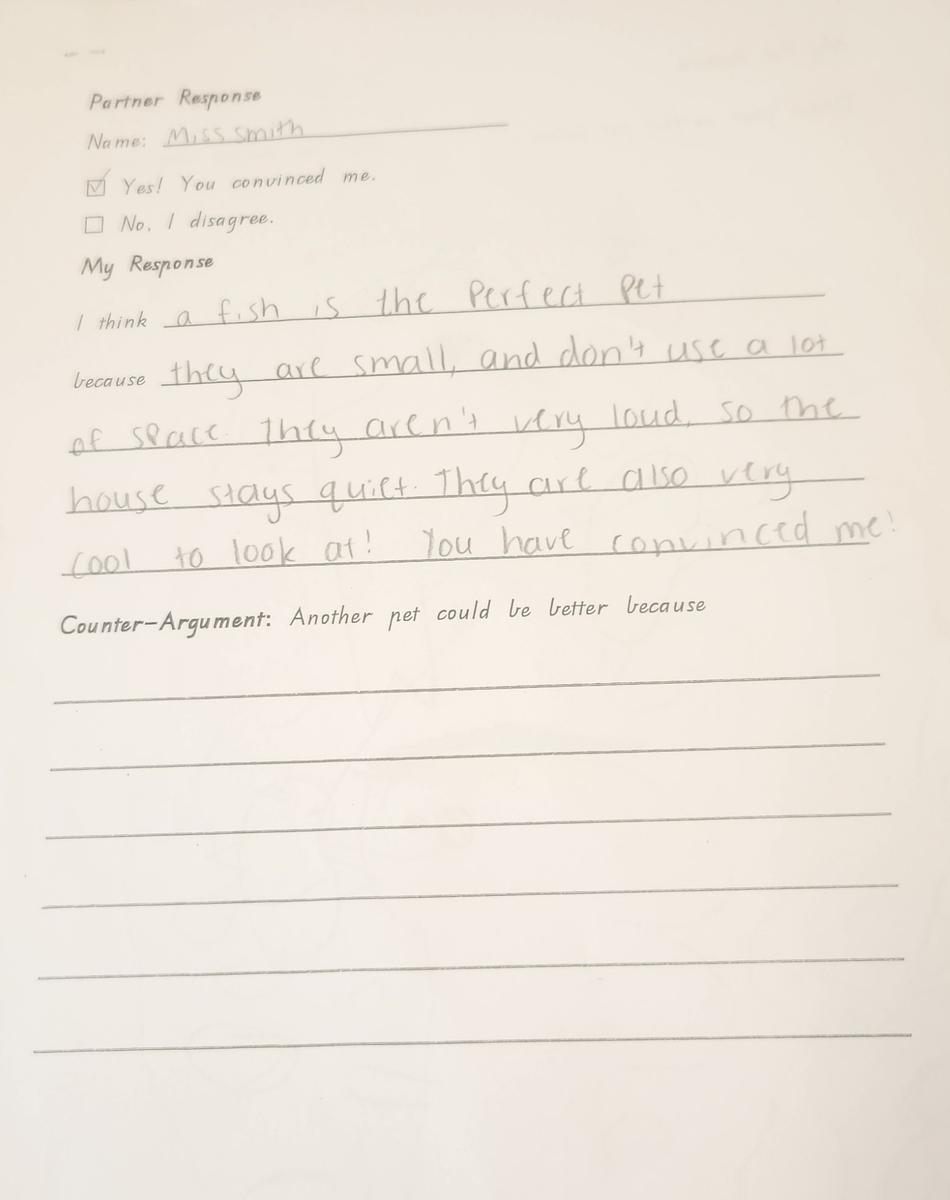 Partner Response
Name: Miss smith
Yes! You convinced me.
No, I disagree.
My Response
I think a fish is the Perfect Pet
because they are small, and don't use a lot
of space. They aren't very loud, so the
house stays quiet. They are also very
cool to look at! You have convinced me!
Counter-Argument: Another pet could be better because